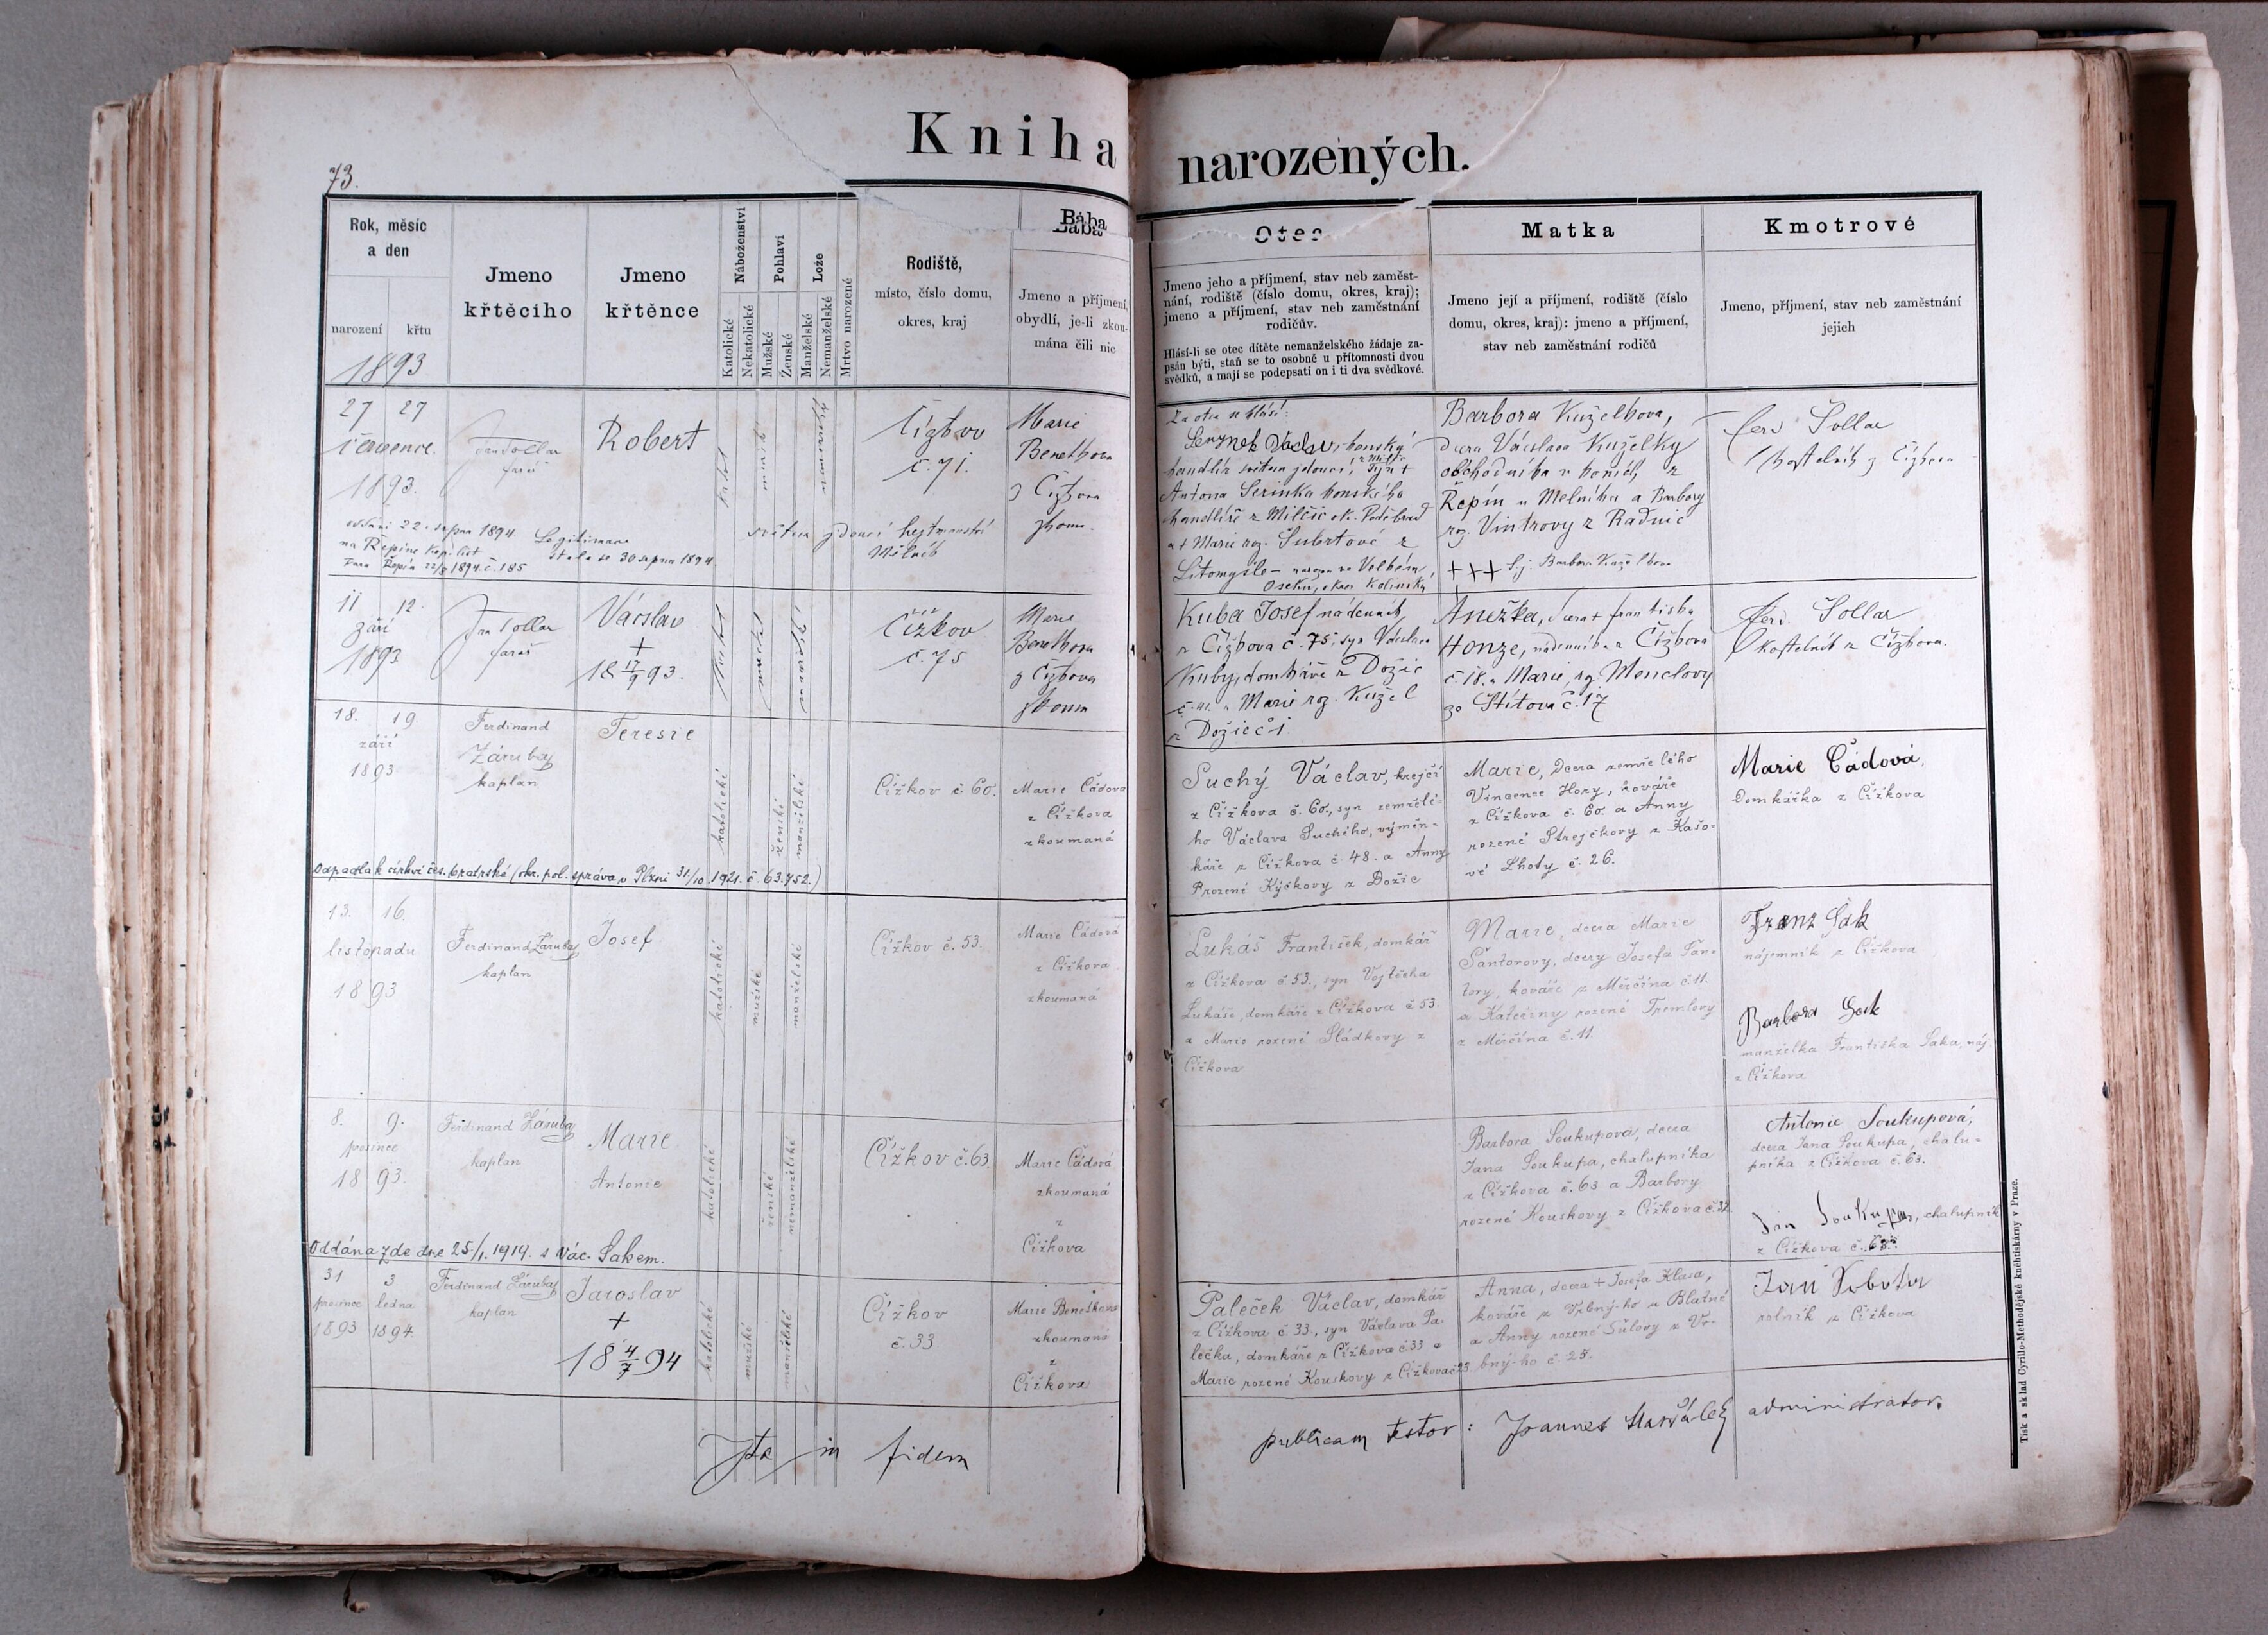 Kniha narozených.
73.
Rok, měsíc
a den
narození
křtu
1893
Jmeno
křtěcího
Jmeno
křtěnce
Náboženství
Katolické
Nekatolické
Pohlaví
Mužské
Ženské
Lože
Manželské
Nemanželské
Mrtvo narozené
Rodiště,
místo, číslo domu,
okres, kraj
Bába
Jmeno a příjmení,
obydlí, je-li zkou-
mána čili nic
Otec
Jmeno jeho a příjmení, stav neb zaměst-
nání, rodiště (číslo domu, okres, kraj);
jmeno a příjmení, stav neb zaměstnání
rodičův.
Hlásí-li se otec dítěte nemanželského žádaje za-
psán býti, staň se to osobně u přítomnosti dvou
svědků, a mají se podepsati on i ti dva svědkové.
Matka
Jmeno její a příjmení, rodiště (číslo
domu, okres, kraj): jmeno a příjmení,
stav neb zaměstnání rodičů
Kmotrové
Jmeno, příjmení, stav neb zaměstnání
jejich
27 27
července
1893.
Jan Sollar
farář
Robert
Čížkov
č. 71.
Marie
Benethova
z Čížkova
zkoum.
oddáni 22. srpna 1894.
na Řepíně kop. list
Fara Řepín 22/8 1894 č. 185
Legitimace
stala se 30 srpna 1894.
světem jdoucí hejtmanství
Mělník
Za otce se hlásí:
handlíř světem jdoucí, syn +
Antona Serinka koňského
handlíře z Milčic ok. Poděbrad
a + Marie roz. Šubrtové z
Litomyšle – narozen ve Velkém
Oseku, okres Kolínský
Barbora Kuželkova,
dcera Václava Kuželky
obchodníka v koních z
Řepín u Melníka a Barbory
roz. Vintrovy z Radnic
+++ Barbora Kuželkova
Ferd. Sollar
kostelník z Čížkova
11 12.
září
1893
Jan Sollar
farář
Václav
+
18 17/9 93.
Čížkov
č. 75
Marie
Benethova
z Čížkova
zkoum
Kuba Josef nádenník
z Čížkova č. 75, syn Václava
Kuby, domkáře z Dožic
č. 41. a Marie roz. Kužel
z Dožic č 1.
Anežka, dcera + Františka
Honze, nádenníka z Čížkova
č 18. a Marie, roz. Menclovy
ze Štítova č. 17
Ferd. Sollar
kostelník z Čížkova.
18. 19
září
1893
Ferdinand
Záruba
kaplan
Teresie
katolické
ženské
manželské
Čížkov č. 60.
Marie Čádova
z Čížkova
zkoumaná
Odpadla k církvi čes. bratrské (okr. pol. správa v Plzni 31/10 1921. č. 63.752.)
Suchý Václav, krejčí
z Čížkova č. 60, syn zemřelé-
ho Václava Suchého, výměn-
káře z Čížkova č. 48. a Anny
rozené Kýčkovy z Dožic
Marie, dcera zemřelého
Vincence Hory, kováře
z Čížkova č. 60. a Anny
rozené Strejčkovy z Kašo-
vé Lhoty č. 26.
Marie Čádová,
Domkářka z Čížkova
13. 16.
listopadu
1893
Ferdinand Záruba
kaplan
Josef
katolické
mužské
manželské
Čížkov č. 53.
Marie Čádová
z Čížkova
zkoumaná
Lukáš František, domkář
z Čížkova č. 53., syn Vojtěcha
Lukáše, domkáře z Čížkova č. 53.
a Marie rozené Sládkovy z
Čížkova
Marie, dcera Marie
Šantorovy, dcery Josefa Šan-
tory, kováře z Měcčína č. 11.
a Kateřiny rozené Tremlovy
z Měcčína č. 11.
Franz Šak
nájemník z Čížkova
Barbora Šak
manželka Františka Šaka, náj.
z Čížkova
8. 9.
prosince
1893.
Ferdinand Záruba
kaplan
Marie
Antonie
katolické
ženské
nemanželské
Čížkov č. 63.
Marie Čádová
zkoumaná
z
Čížkova
Oddána zde dne 25/1. 1919. s Vác. Šakem.
Barbora Soukupová, dcera
Jana Soukupa, chalupníka
z Čížkova č. 63 a Barbory
rozené Kouskovy z Čížkova č. 22.
Antonie Soukupová,
dcera Jana Soukupa, chalu-
pníka z Čížkova č. 63.
Jan Soukup, chalupník
z Čížkova č. 63.
31 3
prosince ledna
1893 1894.
Ferdinand Záruba
kaplan
Jaroslav
+
18 4/7 94
katolické
mužské
manželské
Čížkov
č. 33
Marie Benešková
zkoumaná
z
Čížkova
Paleček Václav, domkář
z Čížkova č 33., syn Václava Pa-
lečka, domkáře z Čížkova č 33 a
Marie rozené Kouskovy z Čížkova č 23.
Anna, dcera + Josefa Klasa,
kováře z Vrbný-ho u Blatné
a Anny rozené Šůlovy z Vr-
bný-ho č. 25.
Jan Sobota
rolník z Čížkova
Ita in fidem publicam testor: Joannes Maršálek administrator.
Tisk a sklad Cyrillo-Methodějské kněhtiskárny v Praze.